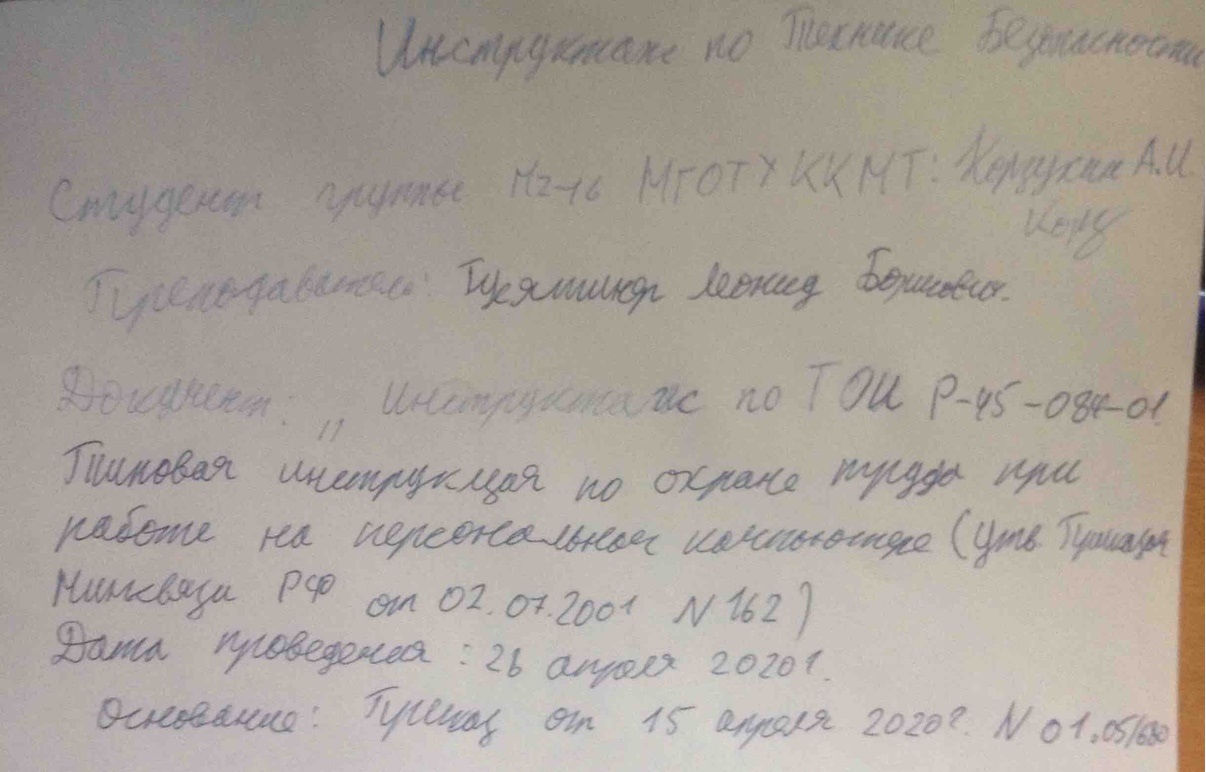 Инструктаж по Технике Безопасности
Студент группы МГОТУ ККМТ: Корзухин А.И.
Преподаватель: Леонид Борисович.
Документ: „ Инструктаж по ТОИ Р-45-084-01.
Типовая инструкция по охране труда при
работе на персональном компьютере (утв. Приказом
Минсвязи РФ от 02.07.2001 N 162)
Дата проведения: 26 апреля 2020г.
Основание: Приказ от 15 апреля 2020г. N 01.05/680